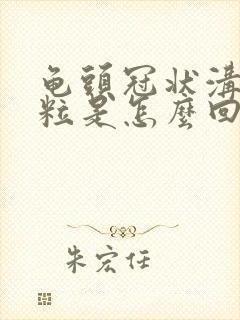 龟頭冠状溝
粒是怎麼回
朱宏任